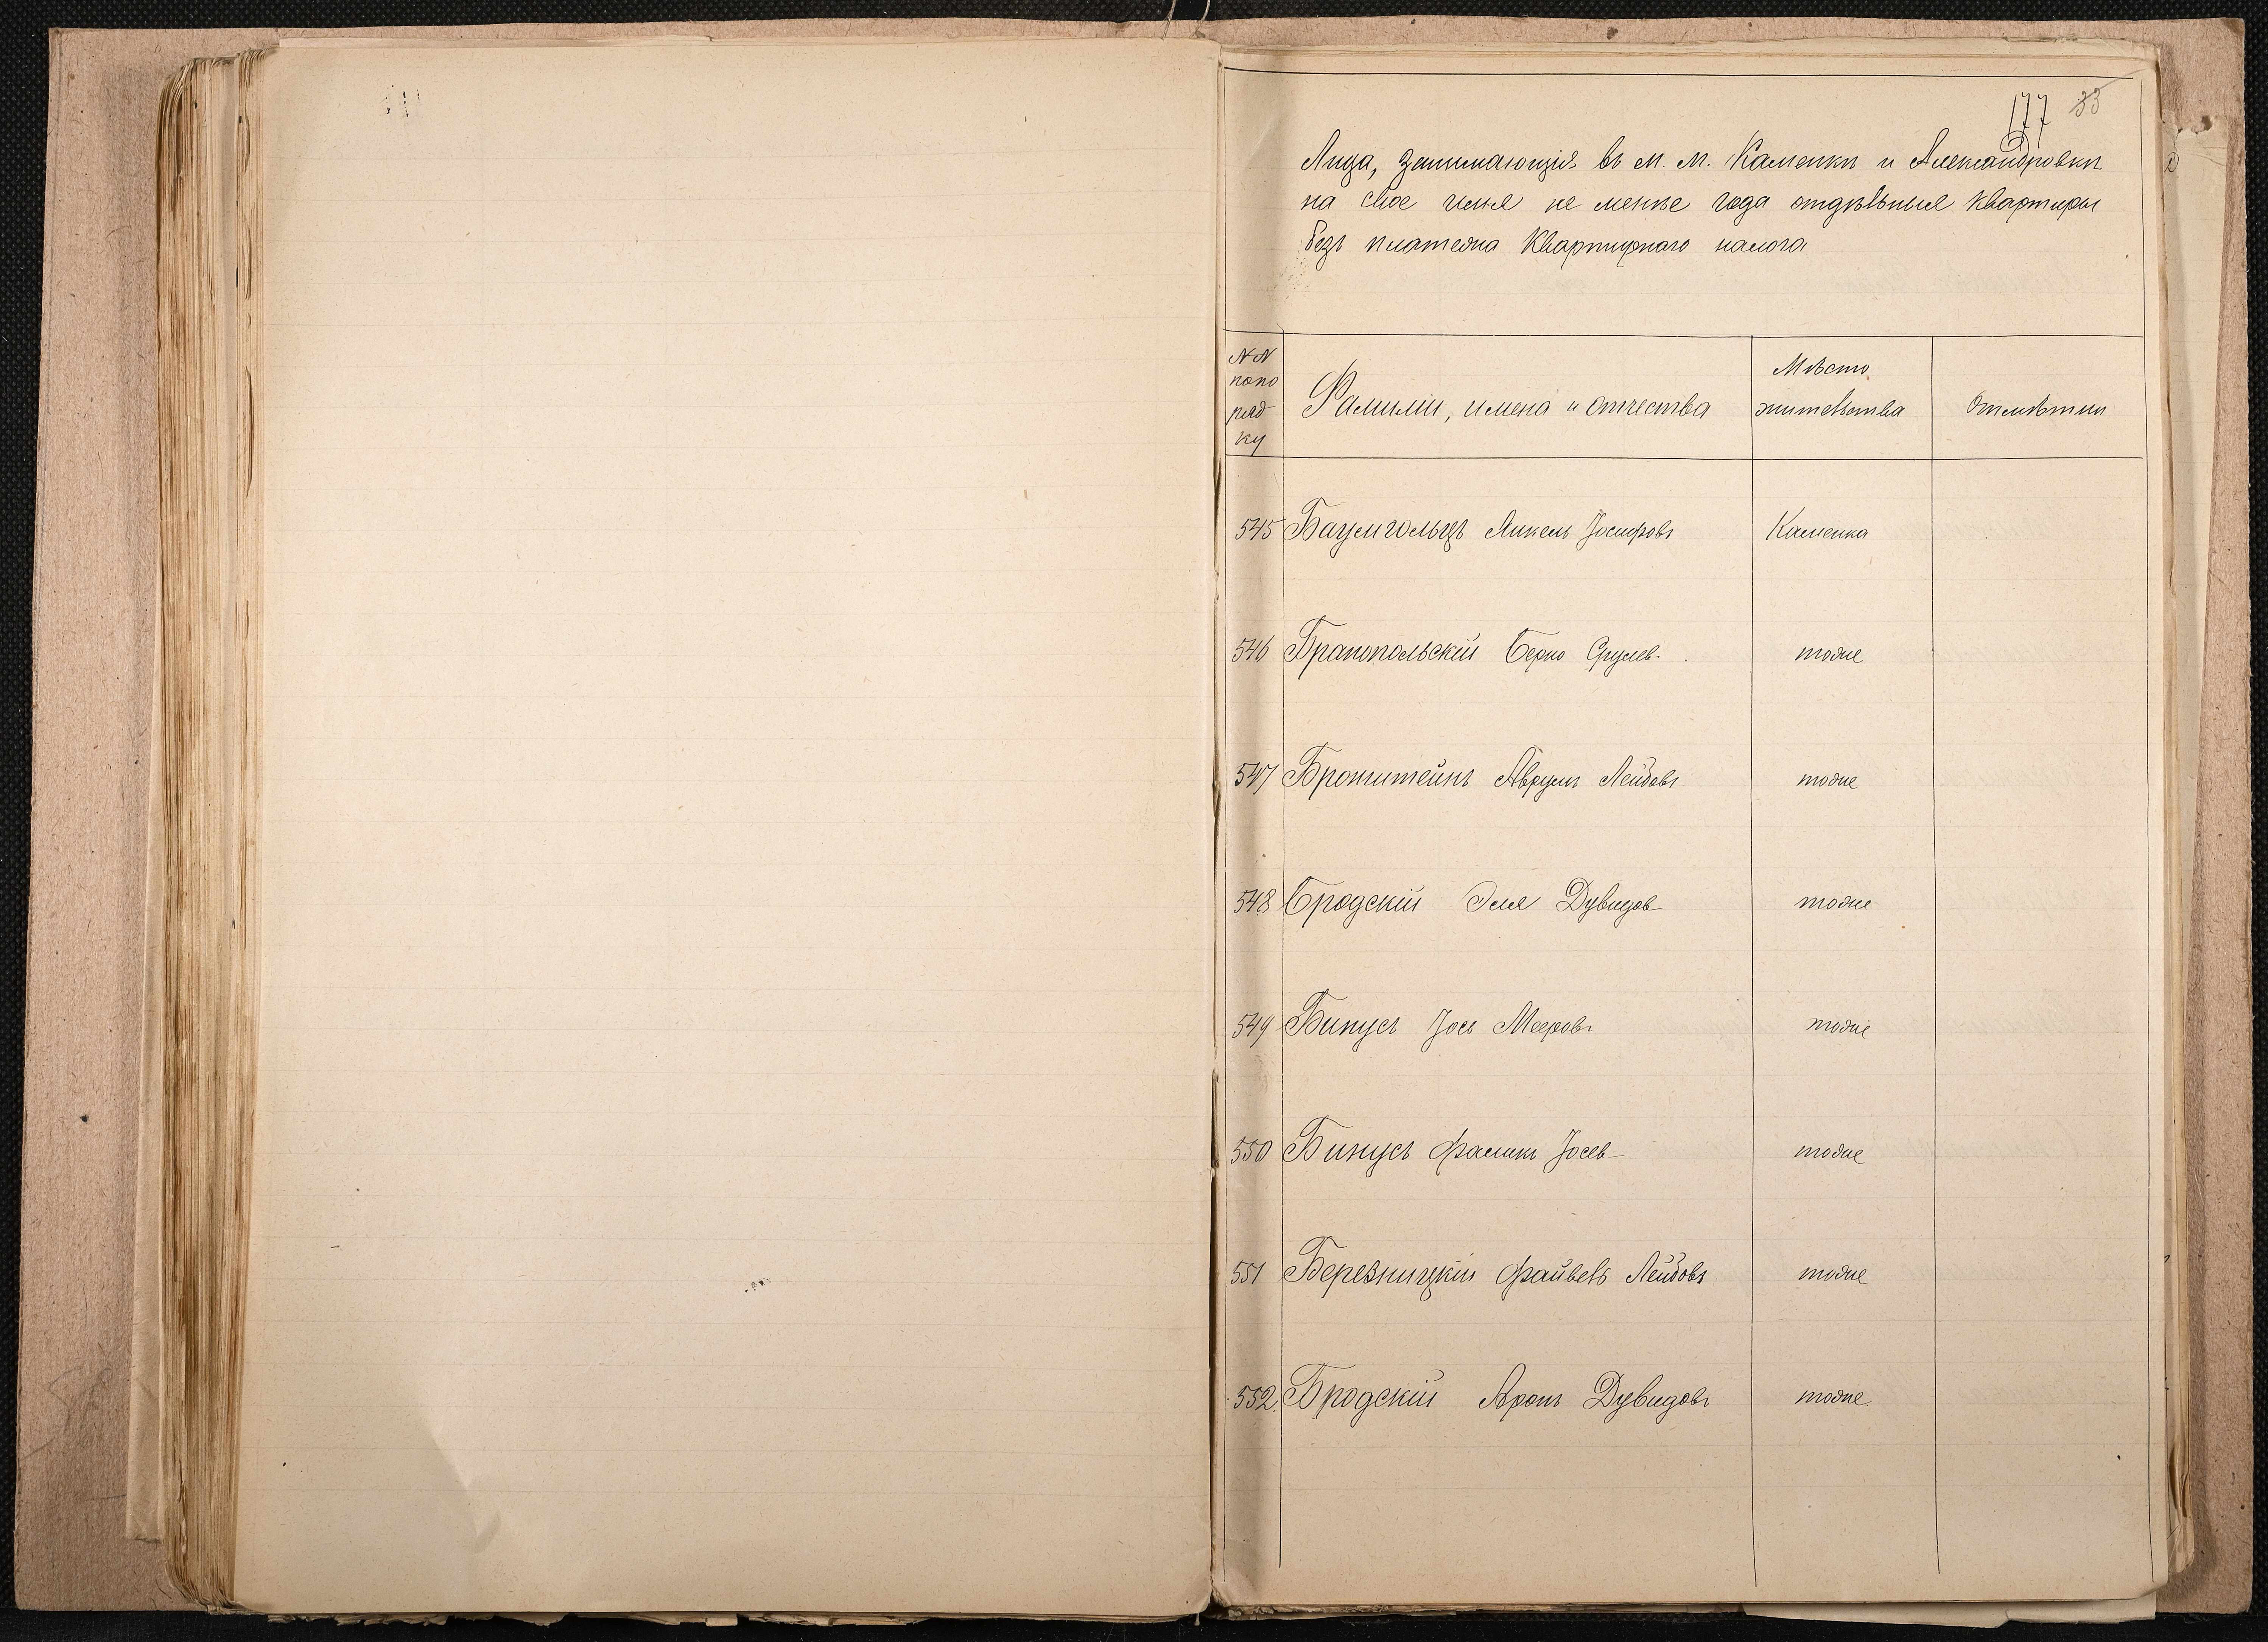 177 33
Лица, занимающія въ м. м. Каменкѣ и Александровкѣ
на свое имя не менѣе года отдѣльныя квартиры
безъ платежа квартирнаго налога
№№ попо ряд ку
Фамиліи, имена и отчества
Мѣсто жительства
Отмѣтки
545 Баумгольцъ Янкель Іосифовъ Каменка
546 Бракопольскій Берко Срулев. тоже
547 Бронштейнъ Аврумъ Лейбовъ тоже
548 Бродскій Эля Дувидов тоже
549 Бинусъ Іось Мееровъ тоже
550 Бинусъ Фаликъ Іосев тоже
551 Березницкій Файвель Лейбовъ тоже
552. Бродскій Аронъ Дувидовъ тоже